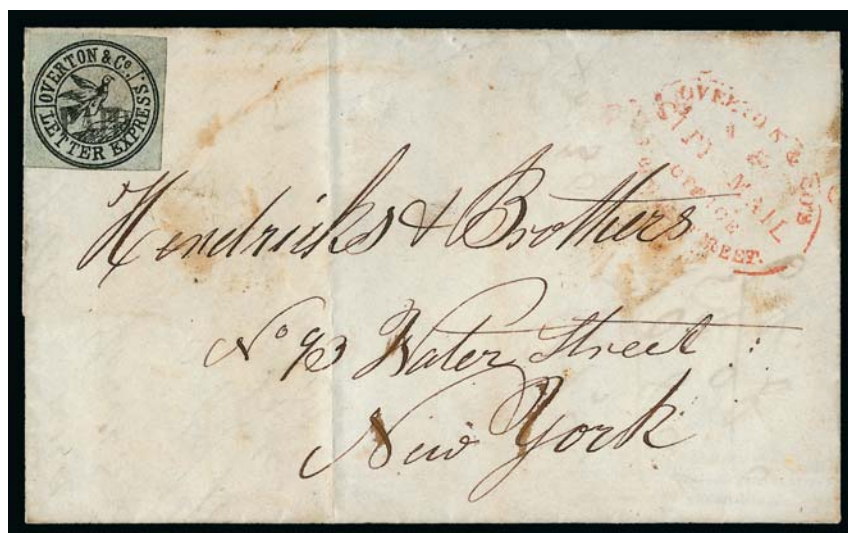 OVERTON & Co.
LETTER EXPRESS.
PAID
OVERTON & CO'S
MAIL
OFFICE
STREET.
Hendricks & Brothers
No 93 Water Street
New York